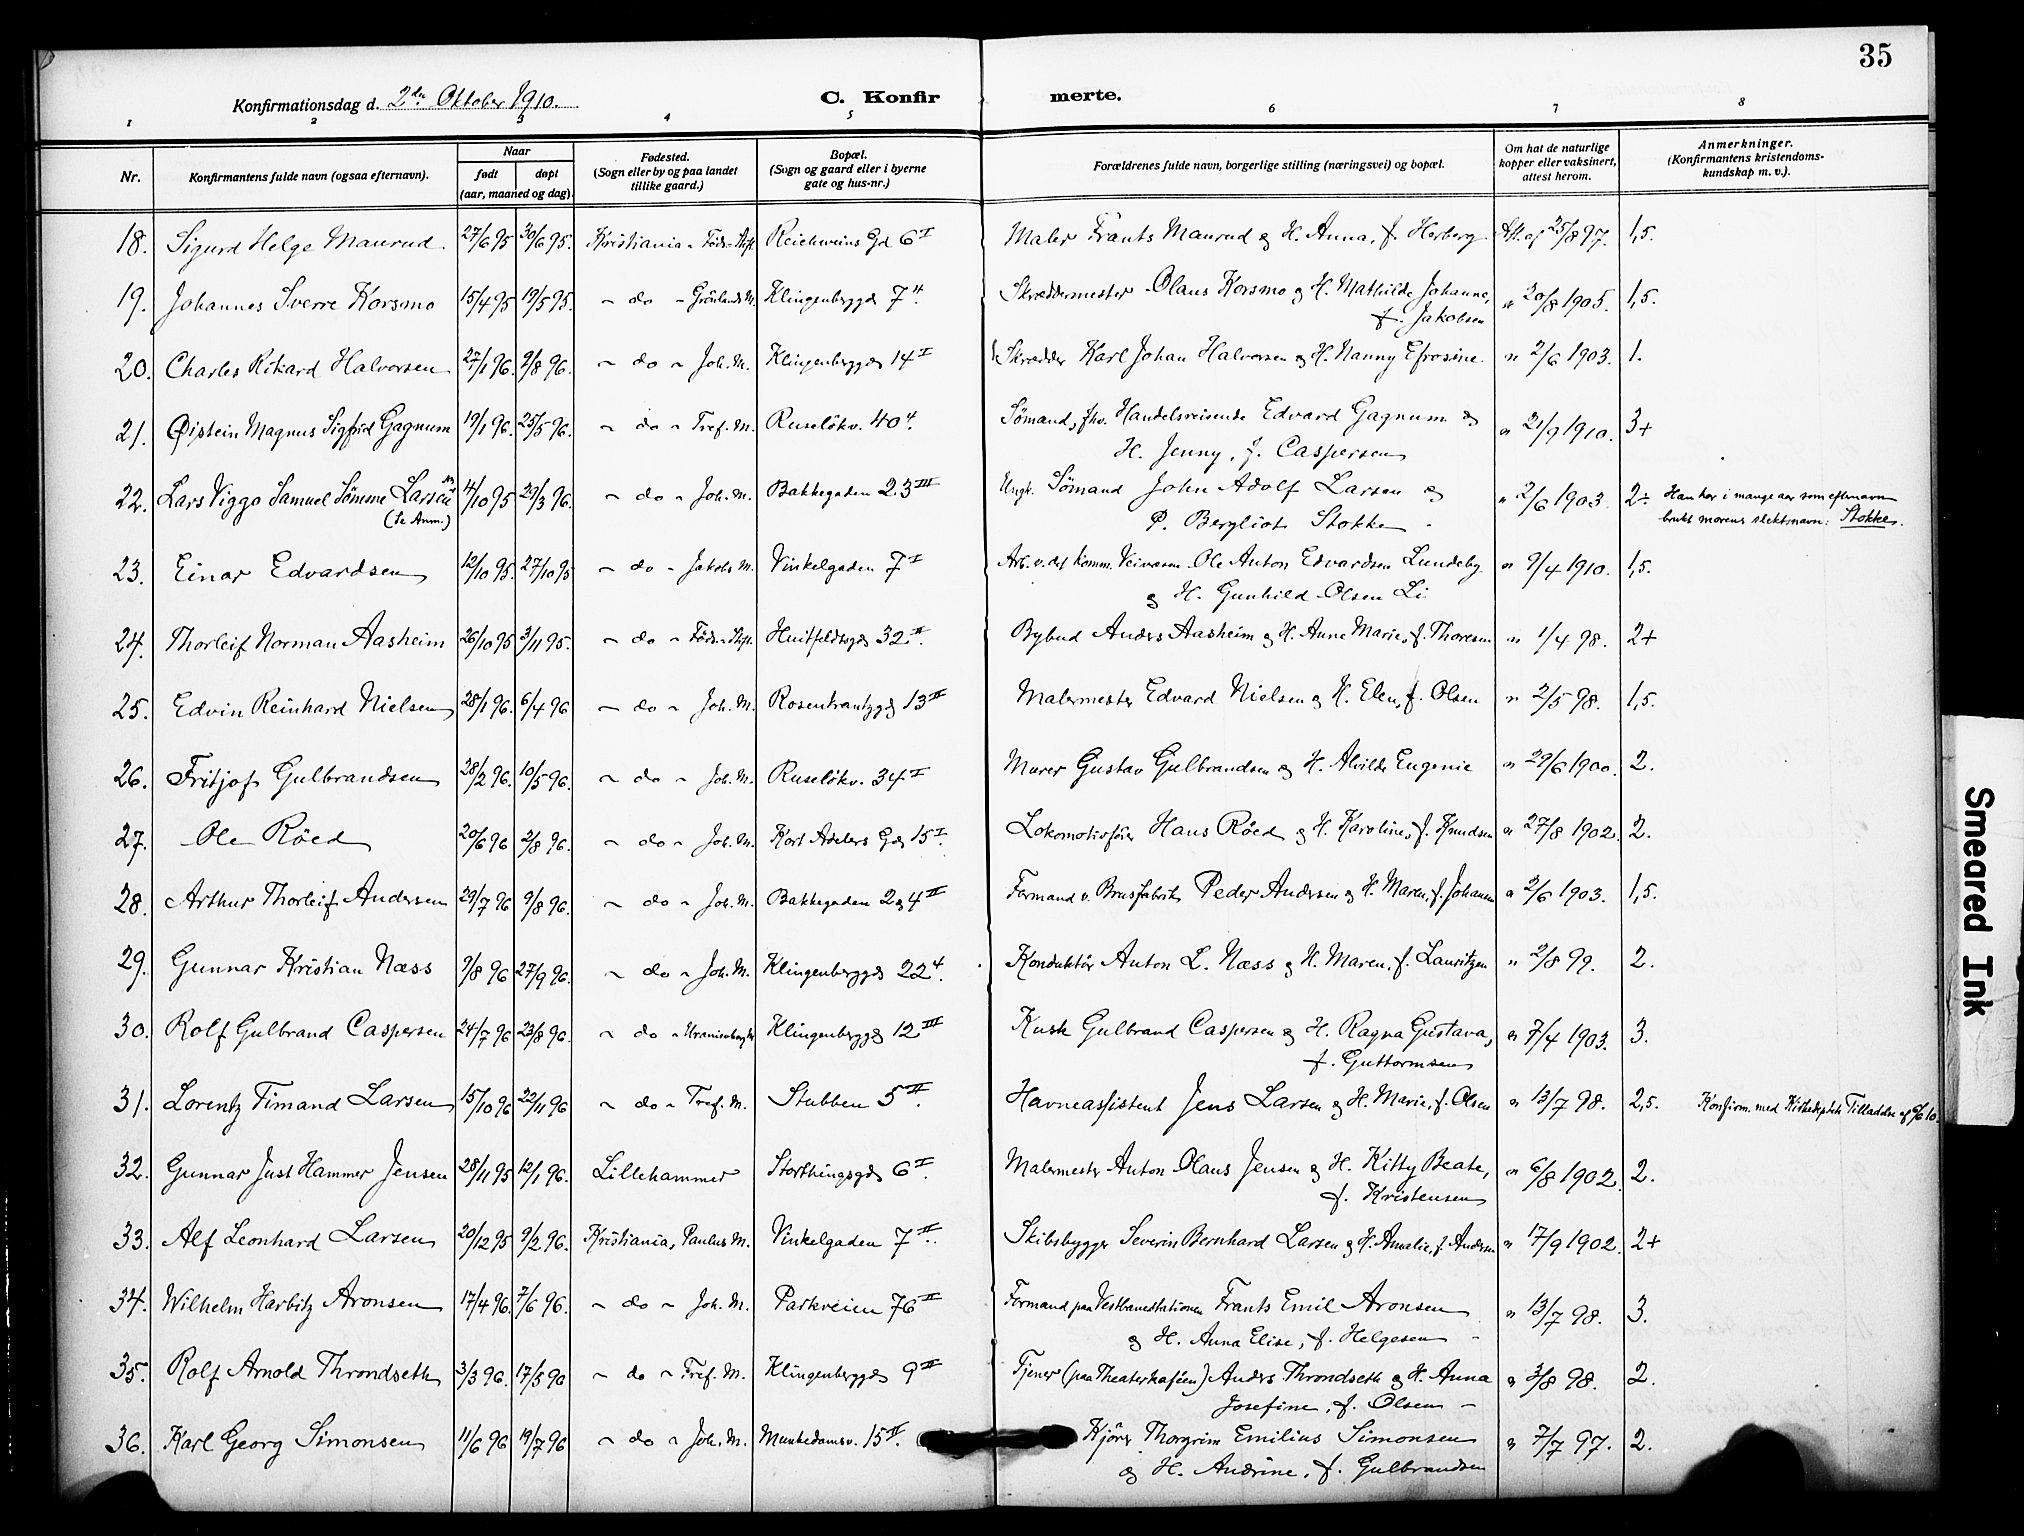 35
Konfirmationsdag d. 2den Oktober 1910. C. Konfirmerte.
1 2 3 4 5 6 7 8
Nr. Konfirmantens fulde navn (ogsaa efternavn). Naar født døpt (aar, maaned og dag). Fødested. (Sogn eller by og paa landet tillike gaard.) Bopæl. (Sogn og gaard eller i byerne gate og hus-nr.) Forældrenes fulde navn, borgerlige stilling (næringsvei) og bopæl. Om hat de naturlige kopper eller vaksinert, attest herom. Anmerkninger. (Konfirmantens kristendoms-kundskap m. v.).
18. Sigurd Helge Maurud 27/6 95 30/6 95. Kristiania - Føds.-Stift. Reichweins Gd 6 I Maler Frants Maurud og H. Anna, f. Herberg Att. af 25/8 97. 1,5.
19. Johannes Sverre Korsmo 15/4 95 19/5 95. - do - Grönlands M. Klingenberggd 7 II. Skreddermester Olaus Korsmo og H. Mathilde Johanne, " 30/8 1905. 1,5.
f. Jakobsen
20. Charles Rikard Halvorsen 27/1 96. 9/8 96. - do - Joh. M. Klingenberggd 14 I Skredder Karl Johan Halvorsen og H. Nanny Efrosine " 2/6 1903. 1.
21. Øistein Magnus Sigfrid Gagnum 19/1 96. 25/5 96. - do - Tref. M. Ruselökv. 40 4. Sömand, fhv. Handelsreisende Edvard Gagnum og " 21/9 1910. 3+
H. Jenny, f. Caspersen
22. Lars Viggo Samuel Sömme Larsen 14/10 95 29/3 96. - do - Joh. M. Bakkegaden 23 III Ungk. Sömand John Adolf Larsen og " 2/6 1903 2÷ Han har i mange aar som efternavn
(Se Anm.) P. Bergliot Stokke - brukt morens slektsnavn: Stokke.
23. Einar Edvardsen 12/10 95. 27/10 95 - do - Jakobs M. Vinkelgaden 7 I Arb. v. det komm. Veivæsen Ole Anton Edvardsen Lundeby " 9/4 1910. 1,5.
og H. Gunhild Olsen Li
24. Thorleif Norman Aasheim 26/10 95 3/11 95. - do - Føds.-Stift. Huitfeldtsgd 32 II. Bybud Anders Aasheim og H. Anne Marie, f. Thoresen " 1/4 98. 2+
25. Edvin Reinhard Nielsen 28/1 96. 6/4 96 - do - Joh. M. Rosenkrantzgd 13 II Malermester Edvard Nielsen og H. Elen, f. Olsen " 2/5 98. 1,5.
26. Fritjof Gulbrandsen 28/2 96. 10/5 96. - do - Joh. M. Ruselökv. 34 I Murer Gustav Gulbrandsen og H. Alvilde Eugenie " 29/6 1900. 2.
27. Ole Röed 20/6 96 2/8 96. - do - Joh. M. Kort Adelers Gd 15 I. Lokomotivförer Hans Röed og H. Karoline, f. Knudsen " 27/8 1902. 2.
28. Arthur Thorleif Andersen 29/7 96 9/8 96. - do - Joh. M. Bakkegaden 2 og 4 II Formand v. Brusfabrik Peder Andersen og H. Maren, f. Johansen " 2/6 1903. 1,5.
29. Gunnar Kristian Næss 9/8 96 27/9 96. - do - Joh. M. Klingenberggd 22 4. Konduktör Anton L. Næss og H. Maren, f. Lauritzen " 2/8 99. 2.
30. Rolf Gulbrand Caspersen 24/7 96 23/8 96. - do - Uranienborg Klingenberggd 12 III Kusk Gulbrand Caspersen og H. Ragna Gustava, " 7/4 1903. 3.
f. Guttormsen
31. Lorentz Timand Larsen 15/10 96 22/11 96 - do - Tref. M. Stubben 5 II. Havneassistent Jens Larsen og H. Marie, f. Olsen " 13/7 98. 2,5. Konfirm. med Kirkedeptets Tilladelse af 9/6 10.
32. Gunnar Just Hammer Jensen 28/11 95 12/1 96. Lillehammer Storthingsgd 6 I. Malermester Anton Olaus Jensen og H. Kitty Beate, " 6/8 1902. 2.
f. Kristensen
33. Alf Leonhard Larsen 20/12 95 9/2 96. Kristiania, Paulus M. Vinkelgaden 7 II. Skibsbygger Severin Bernhard Larsen og H. Amalie, f. Andersen " 17/9 1902. 2+
34. Wilhelm Harbitz Aronsen 17/4 96. 7/6 96. - do - Joh. M. Parkveien 76 II Formand paa Vestbanestationen Frants Emil Aronsen " 13/7 98. 3.
og H. Anna Elise, f. Helgesen -
35. Rolf Arnold Throndseth 3/3 96. 17/5 96 - do - Tref. M. Klingenberggd 9 II Tjener (paa Theaterkaféen) Anders Throndseth og H. Anna " 3/8 98. 2.
Josefine, f. Olsen -
36. Karl Georg Simonsen 11/6 96 19/7 96 - do - Joh. M. Munkedamsv. 15 II. Kjörer Thorgrim Emilius Simonsen " 7/7 97. 2.
og H. Andrine, f. Gulbrandsen
Smeared Ink